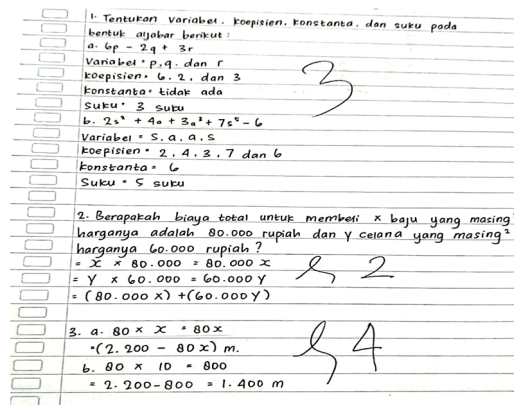 1. Tentukan variabel. koepisien. konstanta. dan suku pada
bentuk aljabar berikut :
a. 6p - 2q + 3r
Variabel = p, q. dan r
koepisien = 6. 2. dan 3
konstanta = tidak ada
Suku = 3 suku
3
b. 2s² + 4a + 3a² + 7s⁵ - 6
Variabel = s. a. a. s
koepisien = 2. 4. 3. 7 dan 6
konstanta = 6
Suku = 5 suku
2. Berapakah biaya total untuk membeli x baju yang masing²
harganya adalah 80.000 rupiah dan y celana yang masing²
harganya 60.000 rupiah ?
= x × 80.000 = 80.000 x
= y × 60.000 = 60.000 y
= (80.000 x) + (60.000 y)
2
3. a. 80 × x = 80x
=(2.200 - 80x) m.
b. 80 × 10 = 800
= 2.200-800 = 1.400 m
4